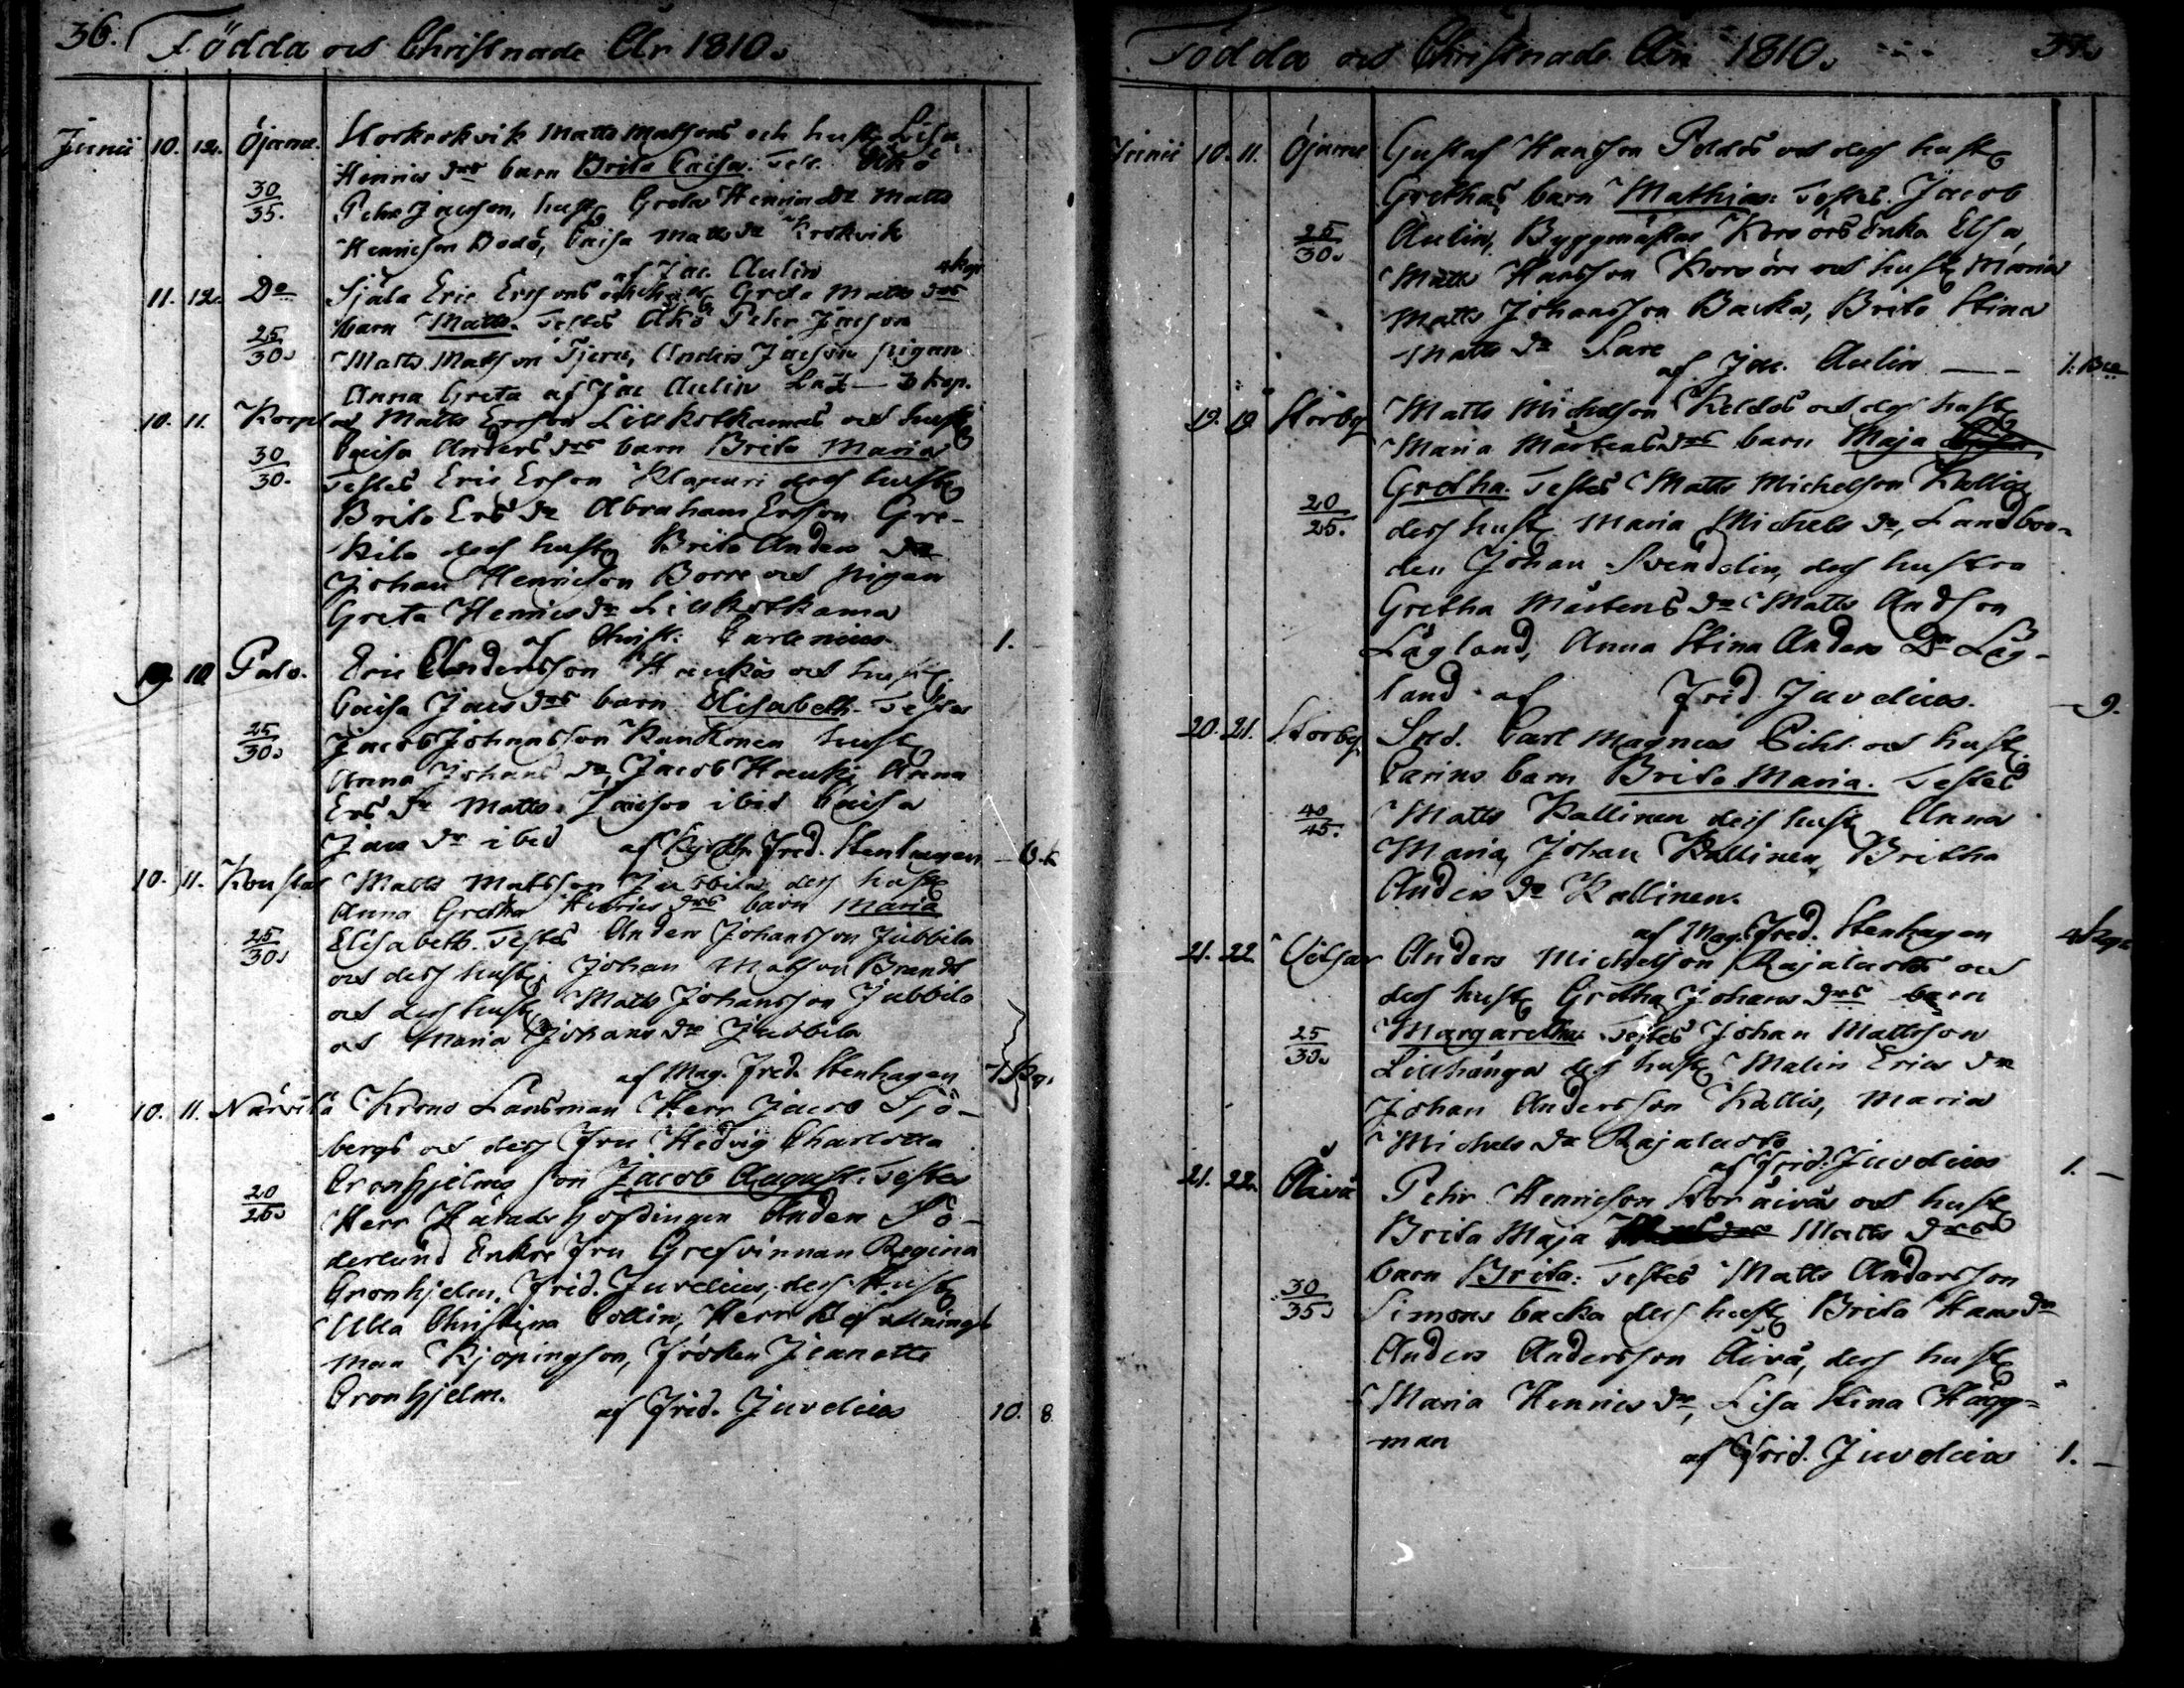 36. Födda och Christnade År 1810.
Junii 10. 12. Öjarne. Storkrokvik Matts Matsons och hust. Lisa
Henrics drs barn Brita Caisa. Test. Åkö
30/35. Petr Jacson, hust. Greta Henrics dr Matts
Henricson Bodö, Caisa Matts dr Krokvik
af Jac. Aulin 4 kop.
11. 12. Do Sjåla Eric Ersons och hust. Greta Matts drs
barn Matts. Testes Åkö Petr Jacson
25/30. Matts Matson Tjeru, Anders Jacson pigan
Anna Greta af Jac Aulin 3 kop.
10. 11. Korpl. Matts Erson Lillkotkamas och hust.
Caisa Anders drs barn Brita Maria
30/30. Testes Eric Erson Klapuri dess hust.
Brita Ers dr Abraham Erson Gre-
kila dess hust. Brita Anders dr
Johan Henricson Borre och pigan
Greta Henrics dr Lillkotkama
af Christ: Carlenius. 1.
9. 10. Palo. Eric Andersson Haukis och hust.
Caisa Jacs drs barn Elisabeth. Testes
25/30. Jacob Johansson hust.
Anna Johans dr, Jacob Hauki, Anna
Ers dr Matts Jacson ibid Caisa
Jacs dr ibid af Fred. Stenhagen
10. 11. Matts Matsson Jubbila, dess hust.
Anna Gretha Henrics drs barn Maria
25/30. Elisabeth. Testes Anders Johansson Jubbila
och dess hust. Johan Matson Brandt
och dess hust. Matts Johansson Jubbila
och Maria Johans dr Jubbila
af Mag. Fred. Stenhagen
10. 11. Närvilä Krono Länsman Herr Jacob Sjö-
bergs och dess Fru Hedvig Charlotta
Cronhjelms son Jacob August. Testes
20/25. Herr Häradshöfdingen Anders Sö-
derlund Enkre Fru Grefvinnan Regina
Cronhjelm. Frid. Juvelius, dess Hust.
Ulla Christina Collin, Herr Befallnings
man Kjöpingson, Fröken Jeanette
Cronhjelm. af Frid. Juvelius 10. 8.
Födda och Christnade År 1810. 37.
Junii 10. 11. Öjarne Gustaf Hansson och dess hust.
Grethas barn Mathias. Testes. Jacob
25/30. Aulin, Byggmästar Korsörs Enka Elsa,
Matts Hansson Korsöre och hust. Maria
Matts Johansson Backa, Brita Stina
Matts dr
af Jac. Aulin 1.
19. 19 Storby Matts Michelson och dess hust.
Maria Mårtens drs barn Maja
Gretha. Testes Matts Michelson Kallis
20/25. dess hust. Maria Michels dr, Landbon-
den Johan Svendelin, dess hustru
Gretha Mårtens dr Matts Andson
Lågland, Anna Stina Anders Dr Låg-
land af Frid Juvelius. 9.
20. 21. Storby Sold. Carl Magnus Pihl och hust.
Carins barn Brita Maria. Testes
40/45. Matts Kallinen dess hust. Anna
Maria, Johan Kallinen, Britha
Anders dr Kallinen.
af Mag. Fred. Stenhagen 4 Kop.
21. 22 Anders Michelson Rajalas och
dess hust. Gretha Johans drs barn
25/30. Margaretha. Testes Johan Mattsson
Lillhånga dess hust. Malin Erics dr
Johan Andersson Kallis, Maria
Michels dr
af Frid: Juvelius 1. —
21. 22. Åivå Petr Henricson Storåivås och hust.
Brita Maja Matts drs
barn Brita: Testes Matts Andersson
30/35. Simonsbacka dess hust. Brita Hans dr
Anders Andersson Åivå, dess hust.
Maria Henrics dr, Lisa Stina Hägg-
man af Frid. Juvelius 1. —